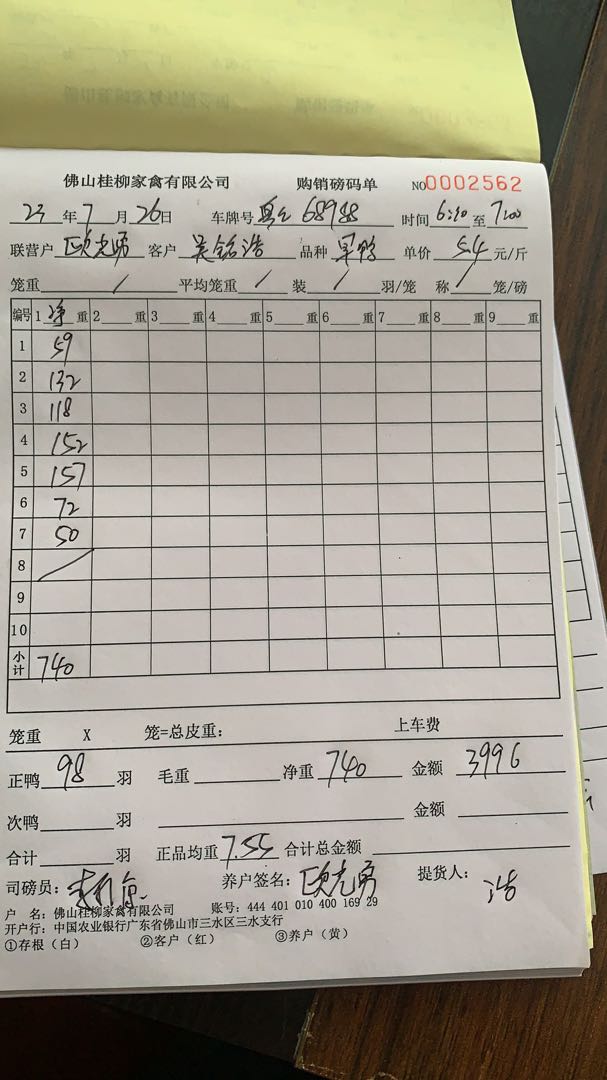 佛山桂柳家禽有限公司 购销磅码单 NO 0002562
23 年 7 月 26 日 车牌号 粤E 68988 时间 6:20 至 7:00
联营户 欧志勇 客户 吴铭浩 品种 军鸭 单价 5.4 元/斤
笼重 / 平均笼重 / 装 / 羽/笼 称 / 笼/磅
编号 1 净 重 2 重 3 重 4 重 5 重 6 重 7 重 8 重 9 重
1 59
2 132
3 118
4 152
5 157
6 72
7 50
8 /
9
10
小计 740
笼重 X 笼=总皮重: 上车费
正鸭 98 羽 毛重 净重 740 金额 3996
次鸭 羽 金额
合计 羽 正品均重 7.55 合计总金额
司磅员: 养户签名: 欧志勇 提货人: 浩
户 名: 佛山桂柳家禽有限公司 账号: 444 401 010 400 169 29
开户行: 中国农业银行广东省佛山市三水区三水支行
①存根（白） ②客户（红） ③养户（黄）